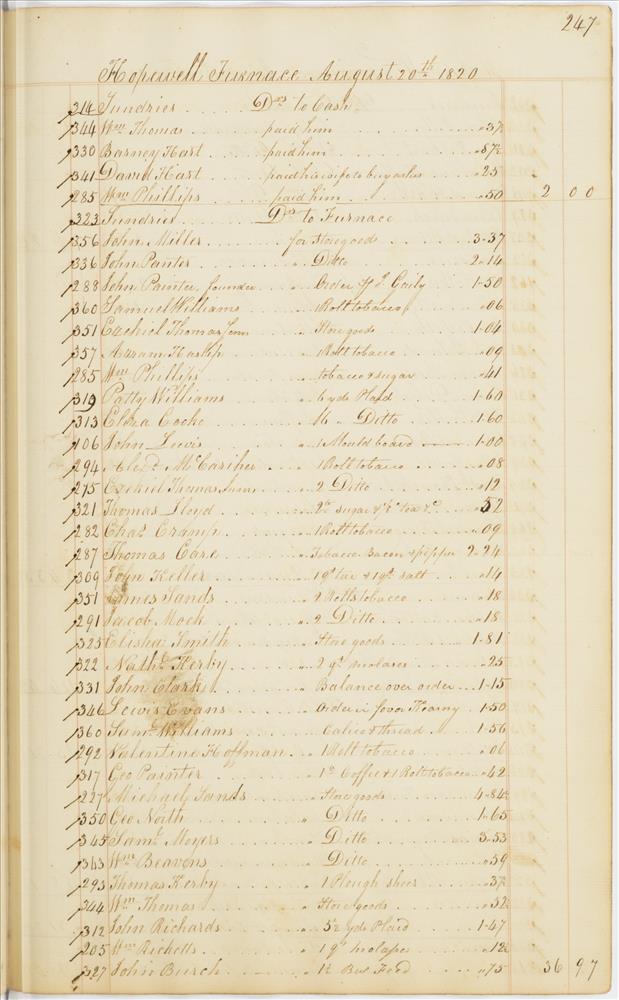 247
Hopewell Furnace August 20th 1820
314 Sundries Drs to Cash
344 Wm Thomas paid him "37½
330 Barney Hart paid him "87½
341 David Hart paid his wife to buy ashes "25
285 Wm Phillips paid him "50 2 00
323 Sundries Drs to Furnace
356 John Miller for Store goods 3-37
336 John Panter " Ditto 2-14
288 John Painter founder " Order 1-50
360 Samuel Williams 1 Roll tobacco "06
351 Ezekiel Thomas Senr " Store goods 1-04
357 Haslep " 1 Roll tobacco "09
285 Wm Phillips " tobacco & sugar "41
319 Patty Williams " 6 yds Plaid 1-60
313 Eliza Cocke " Ditto 1-60
106 John Lewis " 1 Mouldboard 1-00
294 Alexr McCariher " 1 Roll tobacco "08
275 Ezekiel Thomas Junr " 2 Ditto "12
321 Thomas Lloyd " sugar tea 52
282 Chas Cramp " 1 Roll tobacco "09
287 Thomas Care " Tobacco Bacon & pepper 2-24
309 John Keller " 1 qt tar & 1 qt salt "14
351 James Sands " 2 Rolls tobacco "18
291 Jacob Mock " 2 Ditto "18
325 Elisha Smith " Store goods 1-81
322 Nathl Kerby " 2 qt molasses "25
331 John Clark " Balance over order 1-15
346 Lewis Evans " Order in favor Kearny 1-50
360 Saml Williams " Calico & thread 1-56
292 Valentine Hoffman " 1 Roll tobacco "06
317 Geo Painter " 1 lb Coffee & 1 Roll tobacco "42
227 Michael Sands " Store goods 4-84
350 Geo North " Ditto 1-65
345 Saml Moyers " Ditto 3-53
343 Wm Beavens " Ditto "59
293 Thomas Kerby " 1 Plough shear "37½
344 Wm Thomas " Store goods "52
312 John Richards " 5½ yds Plaid 1-47
205 Wm Ricketts " 1 qt molasses "12½
327 John Burch " 1½ Bus Feed "75 36 97